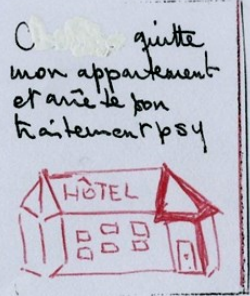 C quitte
mon appartement
et arrête son
traitement psy
HÔTEL